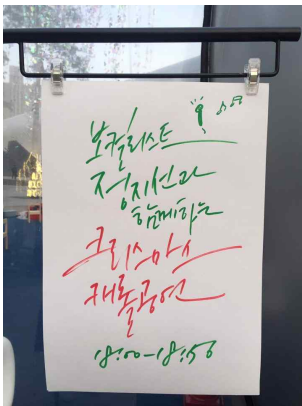 보컬리스트
정지선과
함께하는
크리스마스
캐롤공연
18:00-18:50